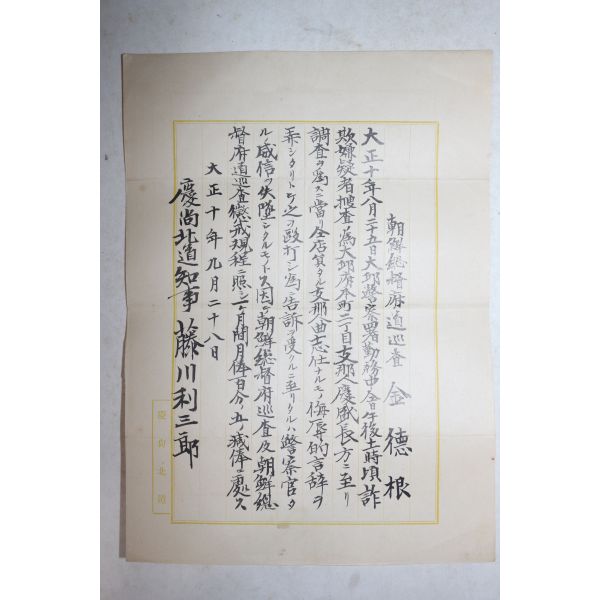 朝鮮総督府道巡査 金德根
大正十年八月二十五日大邱警察署勤務中仝日午後十一時頃詐
欺嫌疑者捜査ノ為大邱府本町二丁目支那人慶盛長方ニ至リ
調査ヲ為スニ當リ仝店員タル支那人曲志仕ナルモノ侮辱的言辞ヲ
弄シタリトテ之ヲ殴打シ為ニ告訴ヲ受クルニ至リタルハ警察官タ
ルノ威信ヲ失墜シタルモノトス因テ朝鮮総督府巡査及朝鮮総
督府道巡査懲戒規程ニ照シ一ヶ月間月俸百分ノ五ノ減俸ニ處ス
大正十年九月二十八日
慶尚北道知事 藤川利三郎
慶尚北道